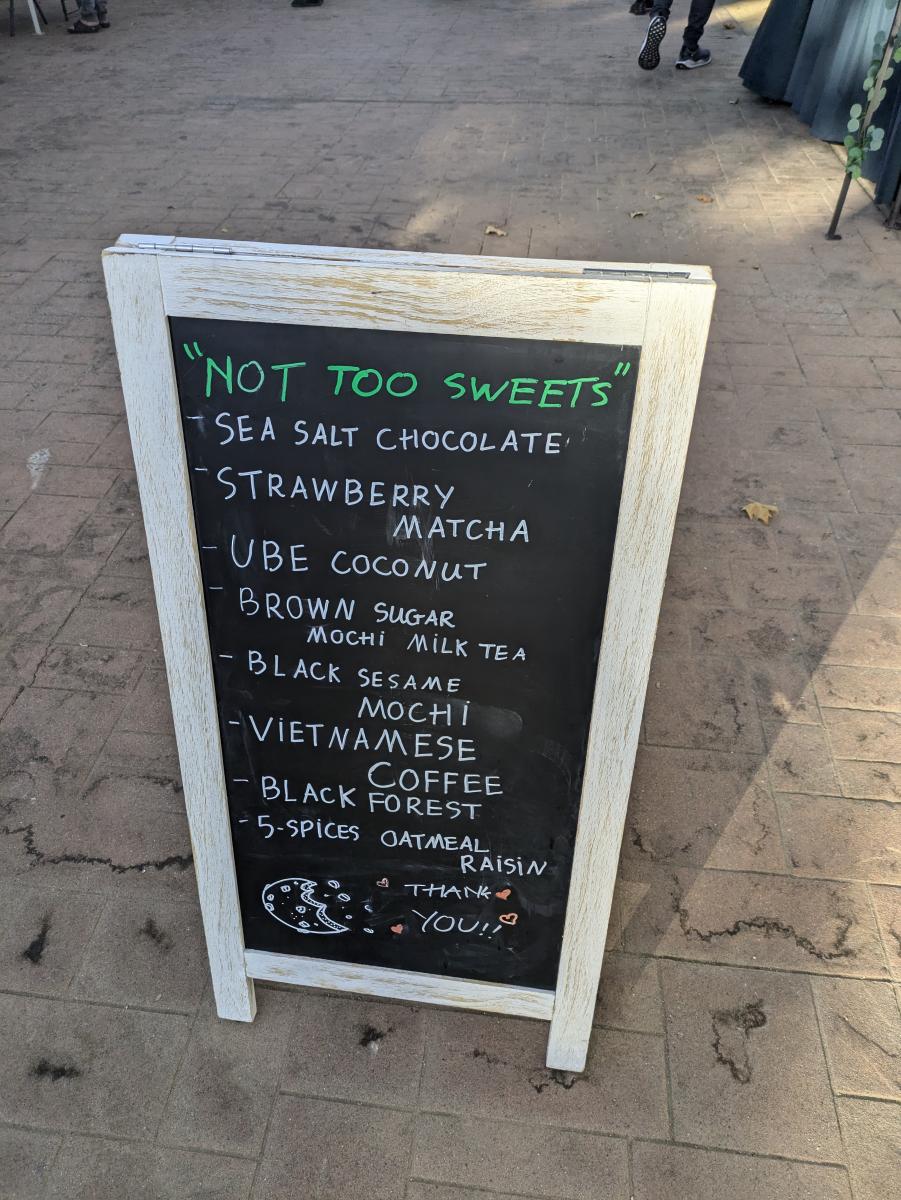 "NOT TOO SWEETS"
- SEA SALT CHOCOLATE
- STRAWBERRY
MATCHA
- UBE COCONUT
- BROWN SUGAR
MOCHI MILK TEA
- BLACK SESAME
MOCHI
- VIETNAMESE
COFFEE
- BLACK FOREST
- 5-SPICES OATMEAL
RAISIN
THANK
YOU!!